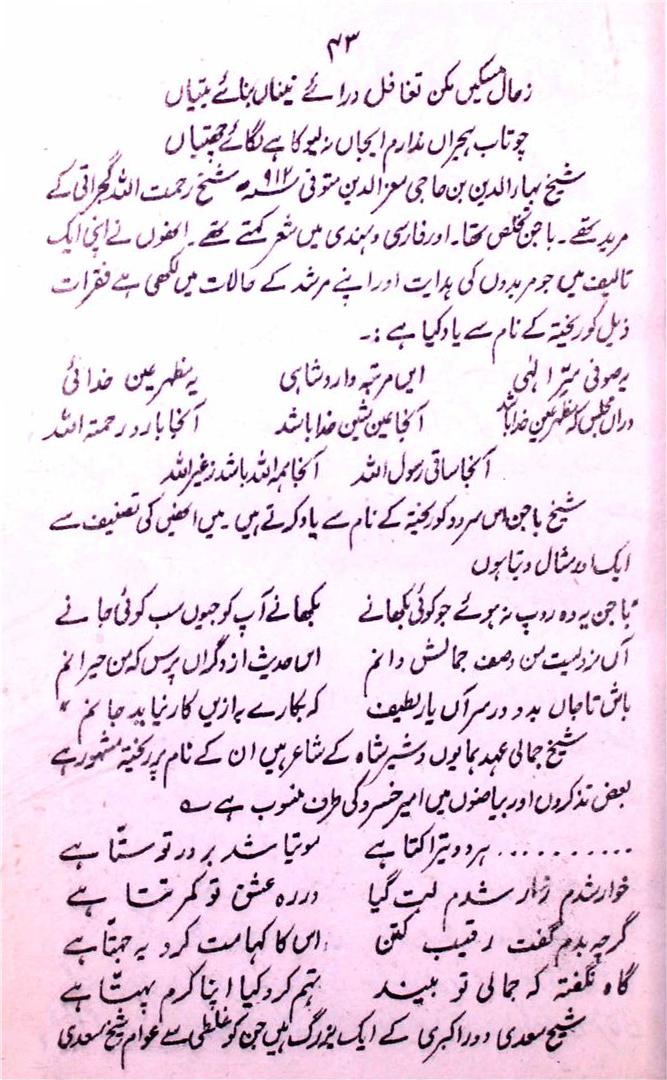 ۴۳
زحال مسکیں مکن تغافل درائے نیناں بنائے بتیاں
چو تاب ہجراں ندارم ایجاں نہ لیو کاہے لگائے چھتیاں
شیخ بہاء الدین بن حاجی معز الدین متوفی ۹۱۲ھ شیخ رحمت اللہ گجراتی کے
مرید تھے۔ باجن تخلص تھا۔ اور فارسی و ہندی میں شعر کہتے تھے۔ انھوں نے اپنی ایک
تالیف میں جو مریدوں کی ہدایت اور اپنے مرشد کے حالات میں لکھی ہے فقرات
ذیل کو ریختہ کے نام سے یاد کیا ہے :۔
یہ صوفی سرّ الٰہی ایں مرتبہ دارد شاہی یہ مظہر عین خدائی
دراں مجلس کہ مظہر عین خدا باشد آنجا عین بعین خدا باشد آنجا بارد رحمتہ اللہ
آنجا ساقی رسول اللہ آنجا ہمہ اللہ باشد نہ غیر اللہ
شیخ باجن اس سرود کو ریختہ کے نام سے یاد کرتے ہیں۔ میں انھیں کی تصنیف سے
ایک اور مثال دیتا ہوں
"باجن یہ وہ روپ نہ ہوئے جو کوئی بکھانے بکھانے آپ کو جیوں سب کوئی جانے
آں نہ دلیست من وصف جمالش دانم اس حدیث از دگراں پرس کہ من حیرانم
باش تا جاں بدو در سر آں یار لطیف کہ بکارے بہ ازیں کار نیاید جانم"
شیخ جمالی عہد ہمایوں و شیر شاہ کے شاعر ہیں ان کے نام پر ریختہ مشہور ہے
بعض تذکروں اور بیاضوں میں امیر خسرو کی طرف منسوب ہے ؎
.......... ہرد ویترا کتا ہے موتیا شد بر در تو ستّا ہے
خوار شدم زار شدم لٹ گیا در رہ عشق تو کمر تتا ہے
گرچہ بدم گفت رقیب کتن اس کا کہا مت کرو یہ جھتا ہے
گاہ نگفتہ کہ جمالی تو بیند ہتم کرد کیا اپنا کرم پھتّا ہے
شیخ سعدی دور اکبری کے ایک بزرگ ہیں جن کو غلطی سے عوام شیخ سعدی